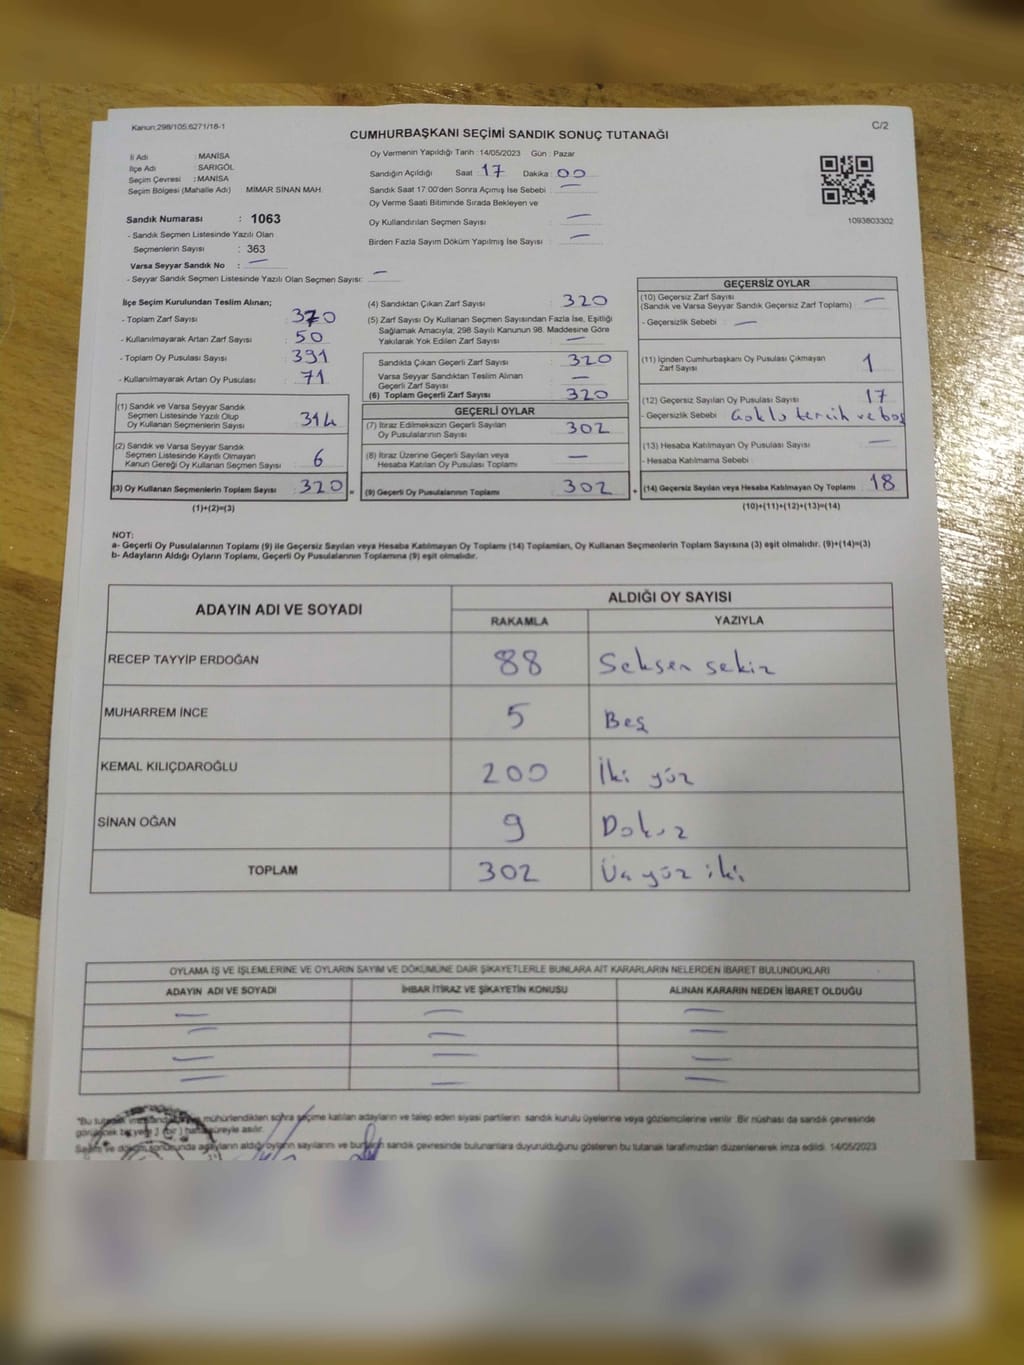 Kanun;298/105;6271/18-1
C/2
CUMHURBAŞKANI SEÇİMİ SANDIK SONUÇ TUTANAĞI
İl Adı : MANİSA
İlçe Adı : SARIGÖL
Seçim Çevresi : MANİSA
Seçim Bölgesi (Mahalle Adı) MİMAR SİNAN MAH.
Sandık Numarası : 1063
- Sandık Seçmen Listesinde Yazılı Olan
Seçmenlerin Sayısı : 363
Varsa Seyyar Sandık No : —
- Seyyar Sandık Seçmen Listesinde Yazılı Olan Seçmen Sayısı: —
Oy Vermenin Yapıldığı Tarih : 14/05/2023 Gün : Pazar
Sandığın Açıldığı Saat 17 Dakika : 00
Sandık Saat 17:00'den Sonra Açımış İse Sebebi : —
Oy Verme Saati Bitiminde Sırada Bekleyen ve
Oy Kullandırılan Seçmen Sayısı : —
Birden Fazla Sayım Döküm Yapılmış İse Sayısı : —
1093803302
İlçe Seçim Kurulundan Teslim Alınan;
- Toplam Zarf Sayısı : 370
- Kullanılmayarak Artan Zarf Sayısı : 50
- Toplam Oy Pusulası Sayısı : 391
- Kullanılmayarak Artan Oy Pusulası : 71
(1) Sandık ve Varsa Seyyar Sandık
Seçmen Listesinde Yazılı Olup
Oy Kullanan Seçmenlerin Sayısı : 314
(2) Sandık ve Varsa Seyyar Sandık
Seçmen Listesinde Kayıtlı Olmayan
Kanun Gereği Oy Kullanan Seçmen Sayısı : 6
(3) Oy Kullanan Seçmenlerin Toplam Sayısı : 320 =
(1)+(2)=(3)
(4) Sandıktan Çıkan Zarf Sayısı : 320
(5) Zarf Sayısı Oy Kullanan Seçmen Sayısından Fazla İse, Eşitliği
Sağlamak Amacıyla; 298 Sayılı Kanunun 98. Maddesine Göre
Yakılarak Yok Edilen Zarf Sayısı : —
Sandıkta Çıkan Geçerli Zarf Sayısı : 320
Varsa Seyyar Sandıktan Teslim Alınan
Geçerli Zarf Sayısı : —
(6) Toplam Geçerli Zarf Sayısı : 320
GEÇERLİ OYLAR
(7) İtiraz Edilmeksizin Geçerli Sayılan
Oy Pusulalarının Sayısı : 302
(8) İtiraz Üzerine Geçerli Sayılan veya
Hesaba Katılan Oy Pusulası Toplamı : —
(9) Geçerli Oy Pusulalarının Toplamı : 302 +
GEÇERSİZ OYLAR
(10) Geçersiz Zarf Sayısı
(Sandık ve Varsa Seyyar Sandık Geçersiz Zarf Toplamı) : —
- Geçersizlik Sebebi : —
(11) İçinden Cumhurbaşkanı Oy Pusulası Çıkmayan
Zarf Sayısı : 1
(12) Geçersiz Sayılan Oy Pusulası Sayısı : 17
- Geçersizlik Sebebi : Çoklu tercih ve boş
(13) Hesaba Katılmayan Oy Pusulası Sayısı : —
- Hesaba Katılmama Sebebi :
(14) Geçersiz Sayılan veya Hesaba Katılmayan Oy Toplamı : 18
(10)+(11)+(12)+(13)=(14)
NOT:
a- Geçerli Oy Pusulalarının Toplamı (9) ile Geçersiz Sayılan veya Hesaba Katılmayan Oy Toplamı (14) Toplamları, Oy Kullanan Seçmenlerin Toplam Sayısına (3) eşit olmalıdır. (9)+(14)=(3)
b- Adayların Aldığı Oyların Toplamı, Geçerli Oy Pusulalarının Toplamına (9) eşit olmalıdır.
ADAYIN ADI VE SOYADI
ALDIĞI OY SAYISI
RAKAMLA YAZIYLA
RECEP TAYYİP ERDOĞAN 88 Seksen sekiz
MUHARREM İNCE 5 Beş
KEMAL KILIÇDAROĞLU 200 İki yüz
SİNAN OĞAN 9 Dokuz
TOPLAM 302 Üç yüz iki
OYLAMA İŞ VE İŞLEMLERİNE VE OYLARIN SAYIM VE DÖKÜMÜNE DAİR ŞİKAYETLERLE BUNLARA AİT KARARLARIN NELERDEN İBARET BULUNDUKLARI
ADAYIN ADI VE SOYADI İHBAR İTİRAZ VE ŞİKAYETİN KONUSU ALINAN KARARIN NEDEN İBARET OLDUĞU
— — —
— — —
— — —
— — —
*Bu mühürlendikten sonra seçime katılan adayların ve talep eden siyasi partilerin sandık kurulu üyelerine veya gözlemcilerine verilir. Bir nüshası da sandık çevresinde
görülecek bir yere süreyle asılır.
Sayım ve döküm sonucunda adayların aldığı oyların sayılarını ve bunların sandık çevresinde bulunanlara duyurulduğunu gösteren bu tutanak tarafımızdan düzenlenerek imza edildi. 14/05/2023